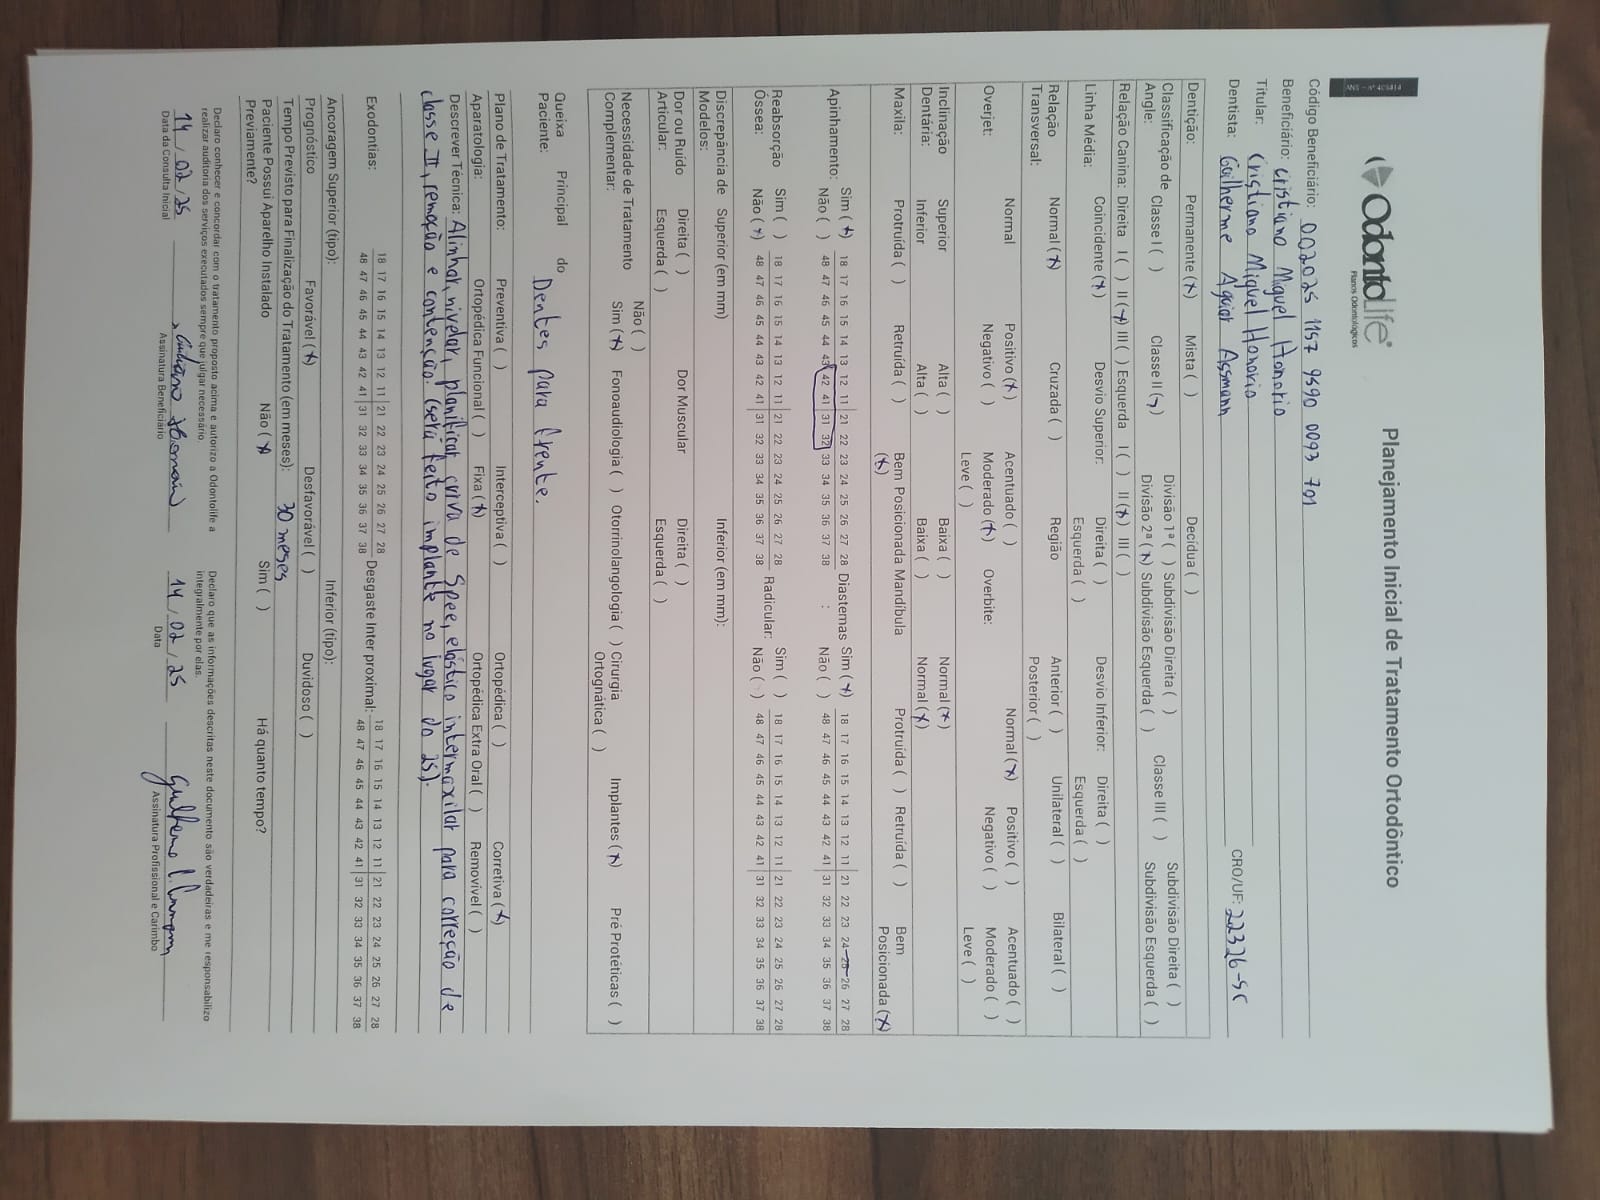 ANS - nº 403814
OdontoLife®
Planos Odontológicos
Planejamento Inicial de Tratamento Ortodôntico
Código Beneficiário: 002025 1157 9590 0093 701
Beneficiário: Cristiano Miguel Honorio
Titular: Cristiano Miguel Honorio
Dentista: Guilherme Aguiar Assmann CRO/UF: 22326-SC
Dentição: Permanente (x) Mista ( ) Decídua ( )
Classificação de Angle: Classe I ( ) Classe II (x) Divisão 1ª ( ) Subdivisão Direita ( ) Classe III ( ) Subdivisão Direita ( )
Divisão 2ª (x) Subdivisão Esquerda ( ) Subdivisão Esquerda ( )
Relação Canina: Direita I ( ) II (x) III ( ) Esquerda I ( ) II (x) III ( )
Linha Média: Coincidente (x) Desvio Superior: Direita ( ) Esquerda ( ) Desvio Inferior: Direita ( ) Esquerda ( )
Relação Transversal: Normal (x) Cruzada ( ) Região Anterior ( ) Posterior ( ) Unilateral ( ) Bilateral ( )
Overjet: Normal Positivo (x) Negativo ( ) Acentuado ( ) Moderado (x) Leve ( ) Overbite: Normal (x) Positivo ( ) Negativo ( ) Acentuado ( ) Moderado ( ) Leve ( )
Inclinação Dentária: Superior Alta ( ) Baixa ( ) Normal (x)
Inferior Alta ( ) Baixa ( ) Normal (x)
Maxila: Protruída ( ) Retruída ( ) Bem Posicionada (x) Mandíbula Protruída ( ) Retruída ( ) Bem Posicionada (x)
Apinhamento: Sim (x) 18 17 16 15 14 13 12 11 21 22 23 24 25 26 27 28 Diastemas : Sim (x) 18 17 16 15 14 13 12 11 21 22 23 24 25 26 27 28
Não ( ) 48 47 46 45 44 43 42 41 31 32 33 34 35 36 37 38 Não ( ) 48 47 46 45 44 43 42 41 31 32 33 34 35 36 37 38
Reabsorção Óssea: Sim ( ) 18 17 16 15 14 13 12 11 21 22 23 24 25 26 27 28 Radicular: Sim ( ) 18 17 16 15 14 13 12 11 21 22 23 24 25 26 27 28
Não (x) 48 47 46 45 44 43 42 41 31 32 33 34 35 36 37 38 Não ( ) 48 47 46 45 44 43 42 41 31 32 33 34 35 36 37 38
Discrepância de Modelos: Superior (em mm) Inferior (em mm):
Dor ou Ruído Articular: Direita ( ) Esquerda ( ) Dor Muscular Direita ( ) Esquerda ( )
Necessidade de Tratamento Complementar: Não ( ) Sim (x) Fonoaudiologia ( ) Otorrinolangologia ( ) Cirurgia Ortognática ( ) Implantes (x) Pré Protéticas ( )
Queixa Principal do Paciente: Dentes para frente.
Plano de Tratamento: Preventiva ( ) Interceptiva ( ) Ortopédica ( ) Corretiva (x)
Aparatologia: Ortopédica Funcional ( ) Fixa (x) Ortopédica Extra Oral ( ) Removível ( )
Descrever Técnica: Alinhar, nivelar, planificar curva de Spee, elástico intermaxilar para correção de
classe II, remoção e contenção. (será feito implante no lugar do 25).
Exodontias: 18 17 16 15 14 13 12 11 21 22 23 24 25 26 27 28 Desgaste Inter proximal: 18 17 16 15 14 13 12 11 21 22 23 24 25 26 27 28
48 47 46 45 44 43 42 41 31 32 33 34 35 36 37 38 48 47 46 45 44 43 42 41 31 32 33 34 35 36 37 38
Ancoragem Superior (tipo): Inferior (tipo):
Prognóstico Favorável (x) Desfavorável ( ) Duvidoso ( )
Tempo Previsto para Finalização do Tratamento (em meses): 30 meses
Paciente Possui Aparelho Instalado Previamente? Não (x) Sim ( ) Há quanto tempo?
Declaro conhecer e concordar com o tratamento proposto acima e autorizo a Odontolife a
realizar auditoria dos serviços executados sempre que julgar necessário.
Declaro que as informações descritas neste documento são verdadeiras e me responsabilizo
integralmente por elas.
14/02/25 14/02/25
Data da Consulta Inicial Assinatura Beneficiário Data Assinatura Profissional e Carimbo